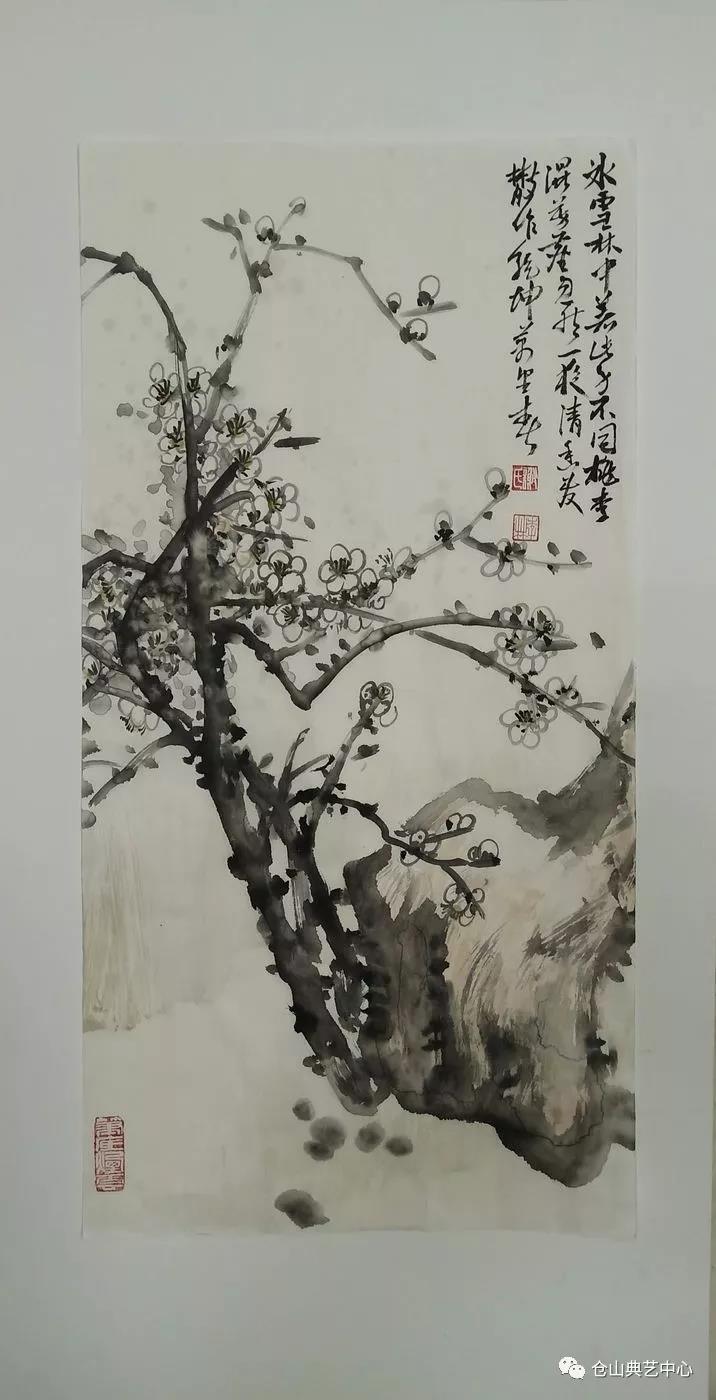 冰雪林中著此身不同桃李
混芳塵忽然一夜清香发
散作乾坤萬里春
仓山典艺中心